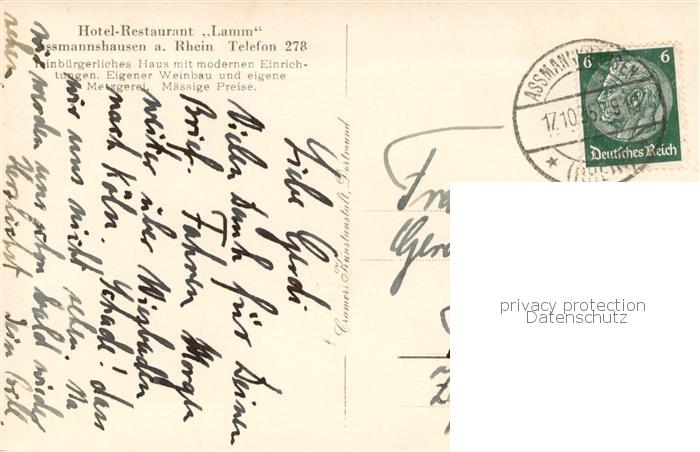 Hotel-Restaurant „Lamm“
Assmannshausen a. Rhein Telefon 278
Feinbürgerliches Haus mit modernen Einrich-
tungen. Eigener Weinbau und eigene
Metzgerei. Mässige Preise.
Liebe Gerdi
Vielen Dank für Deinen
Brief. Fahren Morgen
weiter über Wiesbaden
nach Köln. Schade! dass
wir uns nicht sehen. Na
wir werden uns schon bald wieder
sehen. Herzlichst Dein
Cramers Kunstanstalt, Dortmund
ASSMANNSHAUSEN
17.10.36
(RHEIN)
6 6
Deutsches Reich
Gerd
privacy protection
Datenschutz